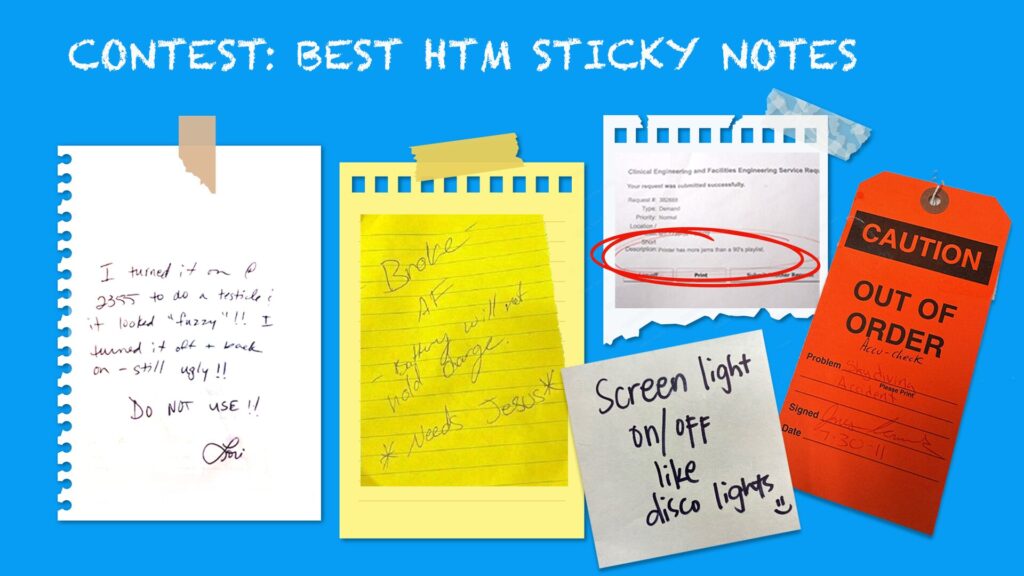 CONTEST: BEST HTM STICKY NOTES
I turned it on @
2355 to do a testicle &
it looked "fuzzy"!! I
turned it off + back
on - still ugly!!
DO NOT USE!!
Lori
Broke
AF
- Battery will not
hold charge.
* Needs Jesus *
Clinical Engineering and Facilities Engineering Service Requ
Your request was submitted successfully.
Request #: 382889
Type: Demand
Priority: Normal
Location:
Short
Description: Printer has more jams than a 90's playlist.
Print
Screen light
on/off
like
disco lights
CAUTION
OUT OF
ORDER
Accu-check
Problem Skydiving
Please Print
Accident
Signed
Date 7.30.11